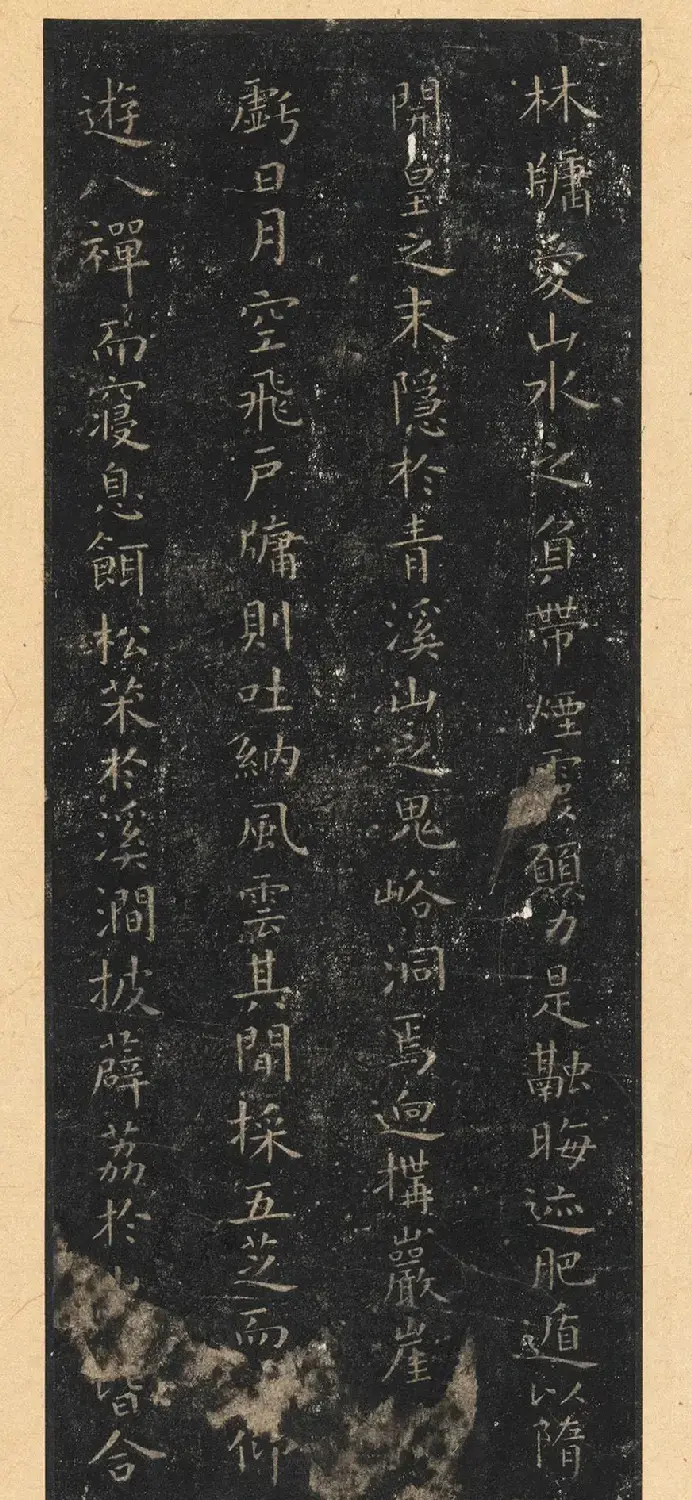 林牗愛山水之負帶煙霞願力是融晦迹肥遁以隋
開皇之末隱於青溪山之鬼峪洞焉迥搆巖崖
虧日月空飛戶牗則吐納風雲其間採五芝而仰
遊八禪而寢息餌松荗於溪澗披薜荔於山皆合